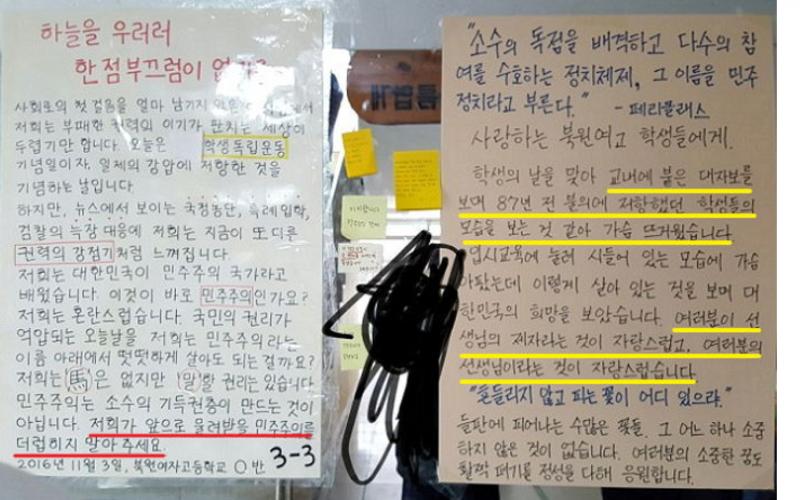 하늘을 우러러
한 점 부끄럼이
사회로의 첫 걸음을 얼마 남기지
저희는 부패한 권력의 이기가 판치는 세상이
두렵기만 합니다. 오늘은 학생독립운동
기념일이자, 일제의 강압에 저항한 것을
기념하는 날입니다.
하지만, 뉴스에서 보이는 국정농단, 특례입학,
검찰의 늑장 대응에 저희는 지금이 또 다른
권력의 강점기처럼 느껴집니다.
저희는 대한민국이 민주주의 국가라고
배웠습니다. 이것이 바로 민주주의인가요?
저희는 혼란스럽습니다. 국민의 권리가
억압되는 오늘날을 저희는 민주주의라는
이름 아래에서 떳떳하게 살아도 되는 걸까요?
저희는 馬은 없지만 말할 권리는 있습니다
민주주의는 소수의 기득권층이 만드는 것이
아닙니다. 저희가 앞으로 물려받을 민주주의를
더럽히지 말아 주세요.
2016년 11월 3일, 북원여자고등학교 O반 3-3
"소수의 독점을 배격하고 다수의 참
여를 수호하는 정치체제, 그 이름을 민주
정치라고 부른다." - 페리클래스
사랑하는 북원여고 학생들에게.
학생의 날을 맞아 교내에 붙은 대자보를
보며 87년 전 불의에 저항했던 학생들의
모습을 보는 것 같아 가슴 뜨거웠습니다
입시교육에 눌려 시들어 있는 모습에 가슴
아팠는데 이렇게 살아 있는 것을 보며 대
한민국의 희망을 보았습니다. 여러분이 선
생님의 제자라는 것이 자랑스럽고, 여러분의
선생님이라는 것이 자랑스럽습니다
"흔들리지 않고 피는 꽃이 어디 있으랴."
들판에 피어나는 수많은 꽃들. 그 어느 하나 소중
하지 않은 것이 없습니다. 여러분의 소중한 꿈도
활짝 펴기를 정성을 다해 응원합니다.